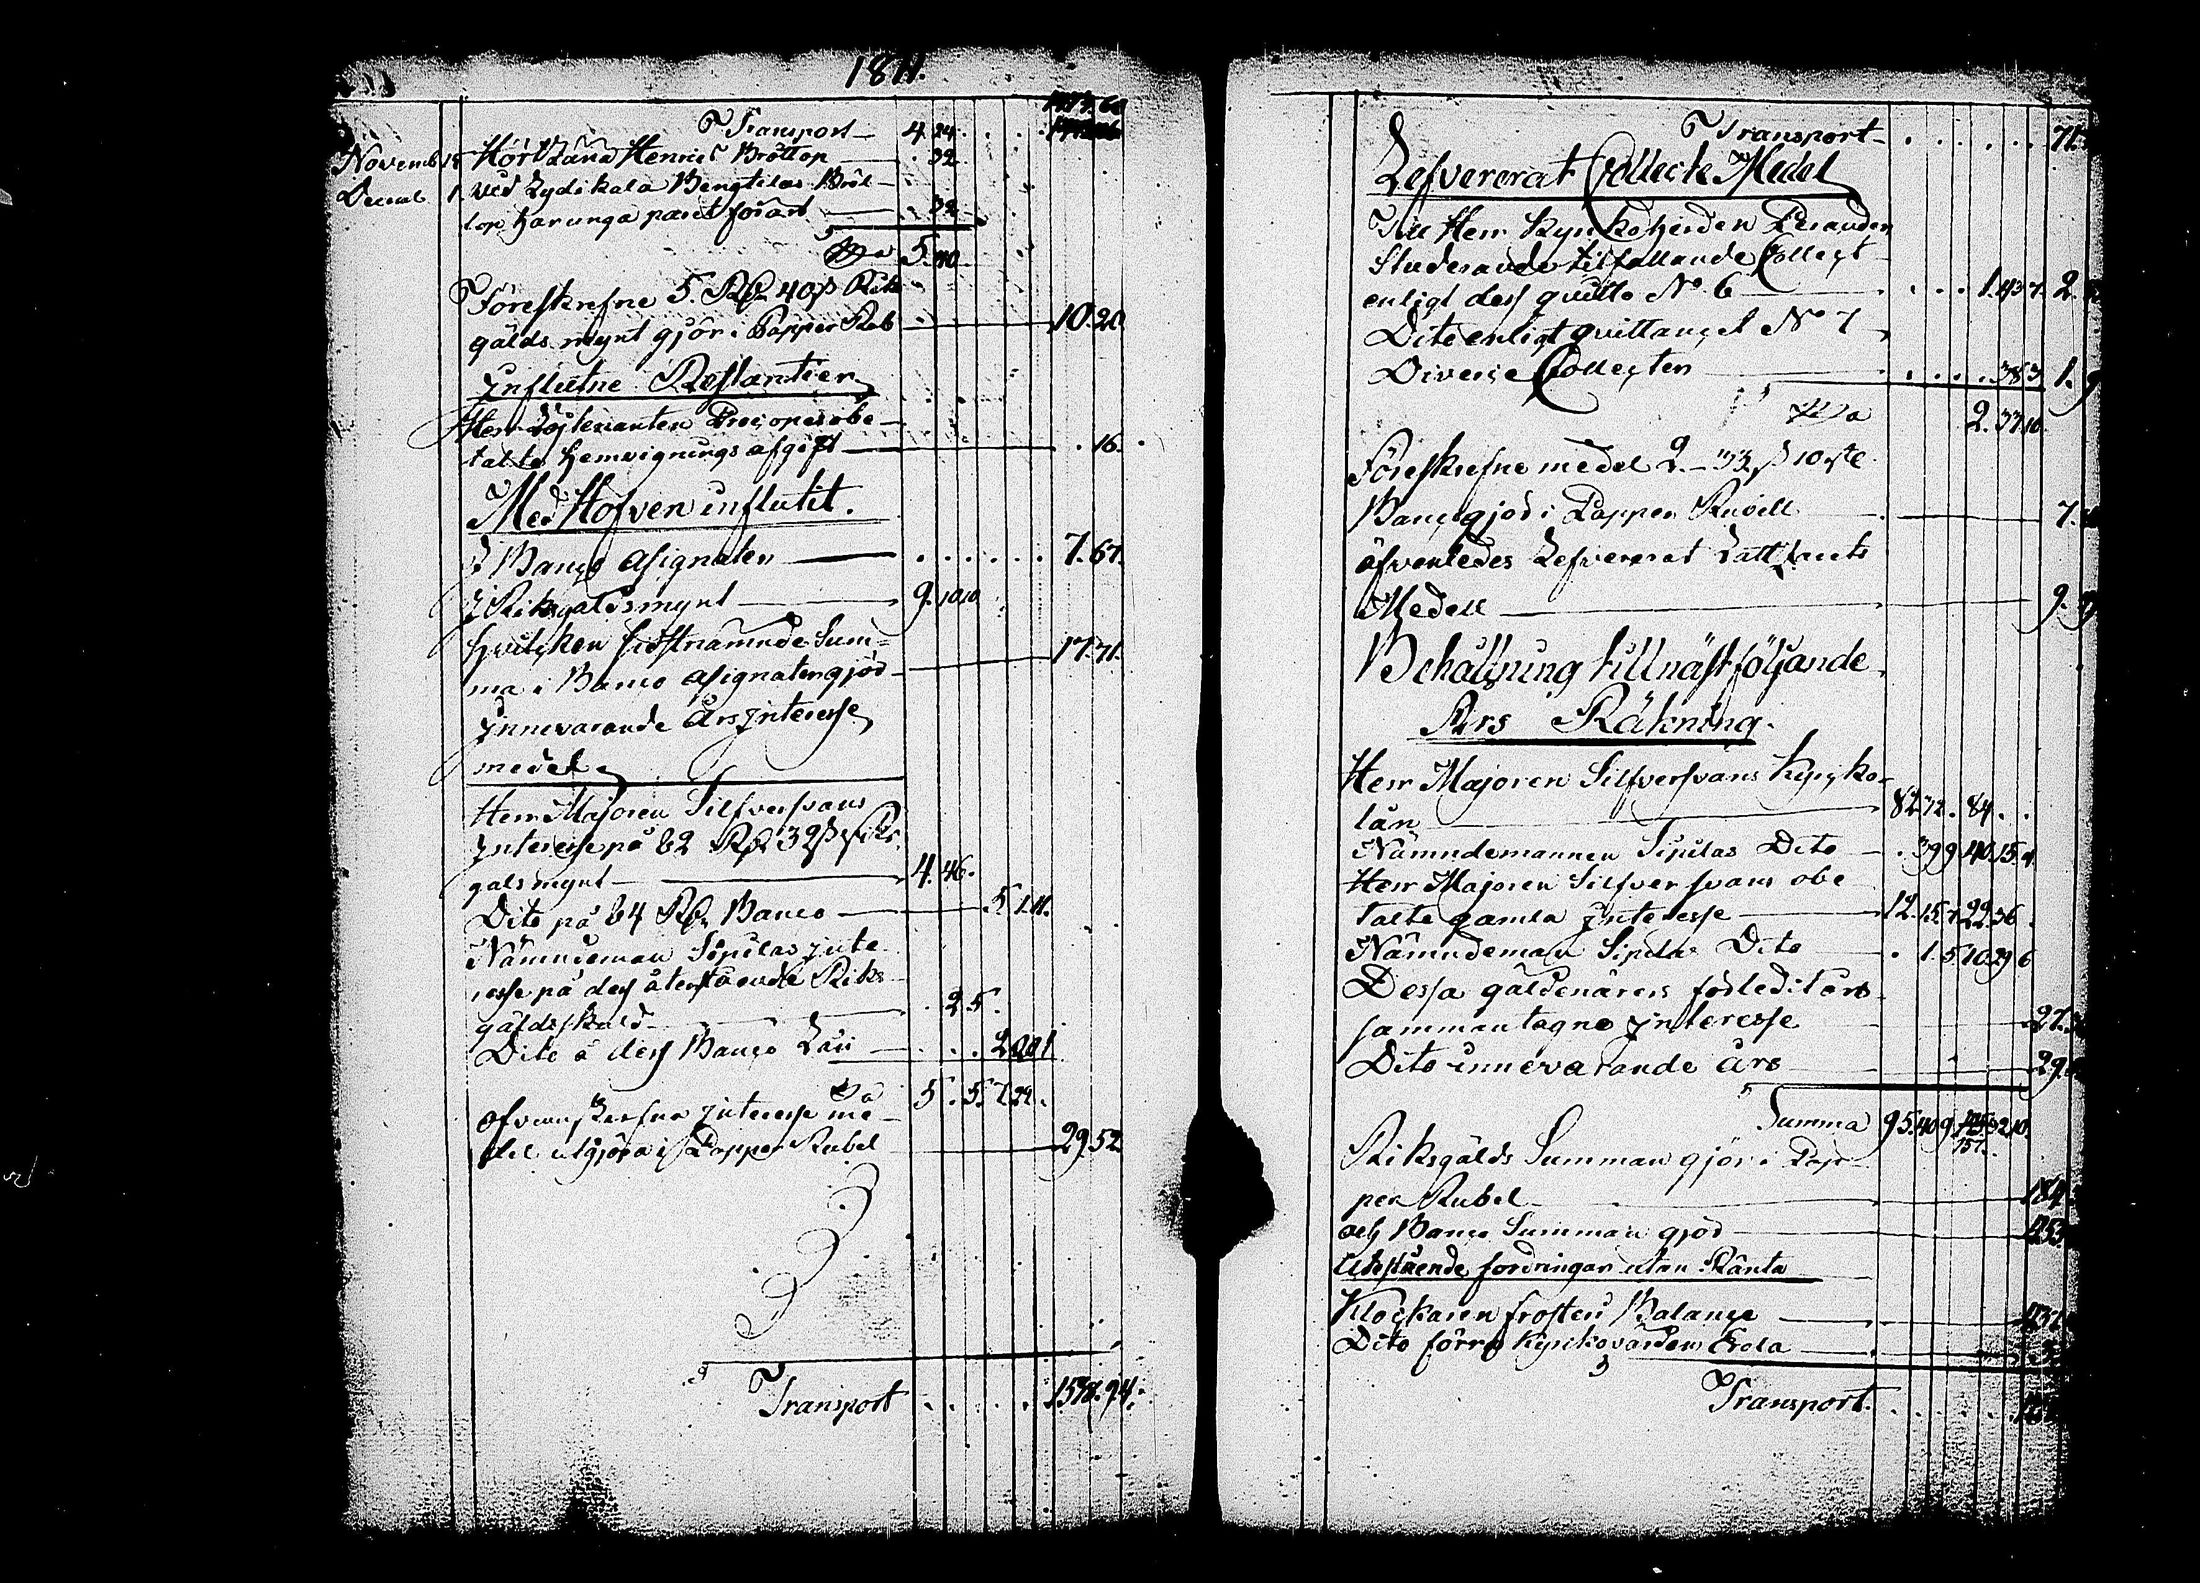 1811.
Transport 4. 24.
Novemb 18 Hört Lars Henrics Bröllop . 32
Decemb 1 ved Lydikala Bengtilas Bröl-
lop Harunga paret förärt . 32
Sa 5. 40.
Föreskrefne 5. Rdr 40 s Riks
gälds mynt gjör i Papper Rub 10. 20.
Influtne Restantier
Herr Löjtenanten Procopé obe-
talte Hemvignings afgift . 16.
Med Hofven influtit.
I Banco Asignater . . . . . . 7. 67.
I Riksgäldsmynt 9. 10 10
Hvilcken sidstnämnde Sum-
ma i Banco Asignater gjör 17. 71.
Innevarande Års Interesse
medel
Herr Majoren Silfversvans
Interesse på 82 Rdr 32 s Riks
gäls mynt 4. 46.
Dito på 84 Rdr Banco 5. 1 11.
Nämndeman Sipilas inte-
resse på dess återstående Riks
gäldsskuld . 2 5.
Dito å dess Banco Lån
Sa 5 . 5 7. 24.
Ofvanskrefne Interesse me-
del utgjöra i Papper Rubel 29. 52
Transport . . . . .
Transport . . . . . . 71.
Lefvererat Collecte Medel
Till Herr Kyrkoherden Peranden
Studerande tilfallande Collect
enligt dess quitto No. 6 . . . . 1. 43 7. 2.
Dito enligt qvittancel No 7
Diverse Collecter . . . . . 38 3. 1.
Sa 2. 33 10.
Föreskrefne medel 2. - 33 s 10 rst
Banco gjör i Papper Rubell 7.
äfvenledes Lefvererat
Medell 9.
Behållning till näst följande
Års Räkning.
Herr Majoren Silfversvans Kyrcko-
lån 82 32 . 84 . .
Nämndemannen Sipilas Dito . 39 9 40. 15. 4.
Herr Majoren Silfversvans obe
talte gamla Interesse 12. 15. 7 22. 36 .
Nämndeman Sipilas Dito . 1. 5 10. 29 6
Dessa gäldenärers förledit års
sammantagne Interesse 27.
Dito innevarande års 29.
Summa 95. 40 9
157.
Riksgälds Summan gjör i Pap-
per Rubel 184
och Banco Summan gjör
Utestående fordringar utan Ränta
Klockaren Frosteri Balance
Dito förre Kyrkovärden Erola
Transport.